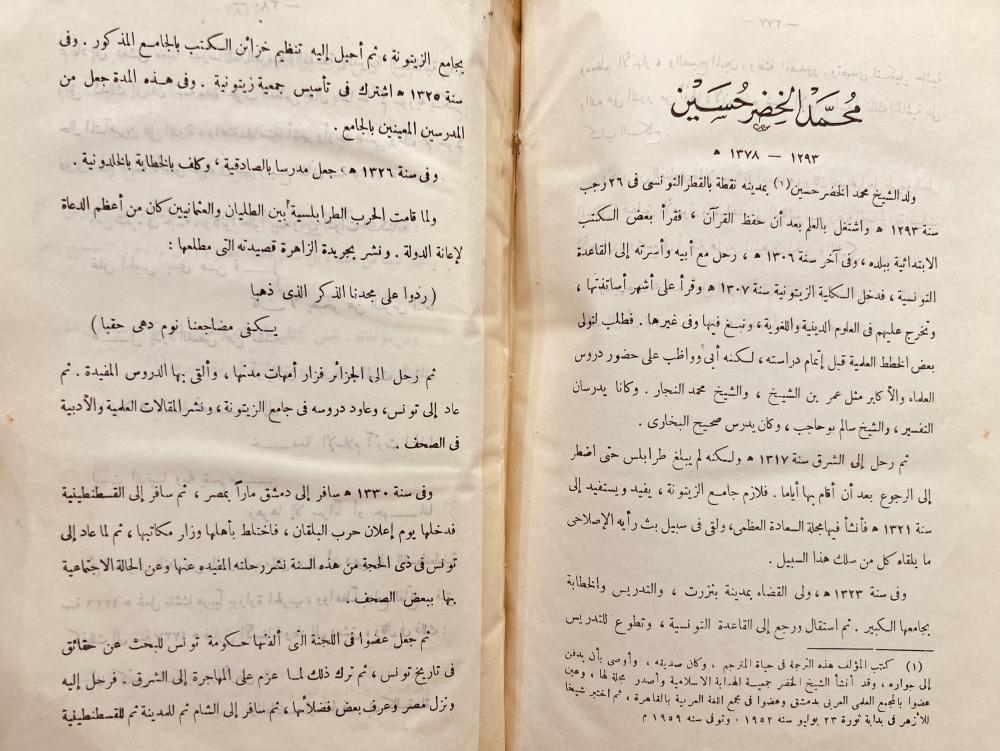 — ٣٧٧ —
محمد الخضر حسين
١٢٩٣ — ١٣٧٨ ه
ولد الشيخ محمد الخضر حسين (١) بمدينه نفطة بالقطر التونسى فى ٢٦ رجب
سنة ١٢٩٣ ه واشتغل بالعلم بعد أن حفظ القرآن ، فقرأ بعض الكتب
الابتدائية ببلده ، وفى آخر سنة ١٣٠٦ ه ، رحل مع أبيه وأسرته إلى القاعدة
التونسية ، فدخل الكلية الزيتونية سنة ١٣٠٧ ه وقرأ على أشهر أساتذتها ،
وتخرج عليهم فى العلوم الدينية واللغوية ، ونبغ فيها وفى غيرها . فطلب لتولى
بعض الخطط العلمية قبل إتمام دراسته ، لكنه أبى وواظب على حضور دروس
العلماء والأكابر مثل عمر بن الشيخ ، والشيخ محمد النجار . وكانا يدرسان
التفسير ، والشيخ سالم بوحاجب ، وكان يدرس صحيح البخارى .
ثم رحل إلى الشرق سنة ١٣١٧ ه ولكنه لم يبلغ طرابلس حتى اضطر
إلى الرجوع بعد أن أقام بها أياما . فلازم جامع الزيتونة ، يفيد ويستفيد إلى
سنة ١٣٢١ ه فأنشأ فيها مجلة السعادة العظمى، ولقى فى سبيل بث رأيه الإصلاحى
ما يلقاه كل من سلك هذا السبيل .
وفى سنة ١٣٢٣ ه، ولى القضاء بمدينة بنزرت ، والتدريس والخطابة
بجامعها الكبير . ثم استقال ورجع إلى القاعدة التونسية ، وتطوع للتدريس
(١) كتب المؤلف هذه الترجمة فى حياة المترجم ، وكان صديقه ، وأوصى بأن يدفن
إلى جواره ، وقد أنشأ الشيخ الخضر جمعية الهداية الاسلامية وأصدر مجلة لها ، وعين
عضوا بالمجمع العلمى العربى بدمشق وعضوا فى مجمع اللغة العربية بالقاهرة ، ثم اختير شيخا
للأزهر فى بداية ثورة ٢٣ يوليو سنه ١٩٥٢ . وتوفى سنه ١٩٥٩ م
بجامع الزيتونة ، ثم أحيل إليه تنظيم خزائن الكتب بالجامع المذكور . وفى
سنة ١٣٢٥ ه اشترك فى تأسيس جمعية زيتونية . وفى هذه المدة جعل من
المدرسين المعينين بالجامع .
وفى سنة ١٣٢٦ ه ، جعل مدرسا بالصادقية ، وكلف بالخطابة بالخلدونية .
ولما قامت الحرب الطرابلسية بين الطليان والعثمانيين كان من أعظم الدعاة
لإعانة الدولة . ونشر بجريدة الزاهرة قصيدته التى مطلعها :
( ردوا على مجدنا الذكر الذى ذهبا
يكفى مضاجعنا نوم دهى حقبا )
ثم رحل الى الجزائر فزار أمهات مدنها ، وألقى بها الدروس المفيدة . ثم
عاد إلى تونس، وعاود دروسه فى جامع الزيتونة ، ونشر المقالات العلمية والأدبية
فى الصحف .
وفى سنة ١٣٣٠ ه سافر إلى دمشق ماراً بمصر ، ثم سافر إلى القسطنطينية
فدخلها يوم إعلان حرب البلقان ، فاختلط بأهلها وزار مكاتبها ، ثم لما عاد إلى
تونس فى ذى الحجة من هذه السنة نشر رحلته المفيده عنها وعن الحالة الاجتماعية
بها ببعض الصحف .
ثم جعل عضوا فى اللجنة التى ألفتها حكومة تونس للبحث عن حقائق
فى تاريخ تونس ، ثم ترك ذلك لما عزم على المهاجرة إلى الشرق . فرحل إليه
ونزل مصر وعرف بعض فضلائها ، ثم سافر إلى الشام ثم للمدينة ثم للقسطنطينية